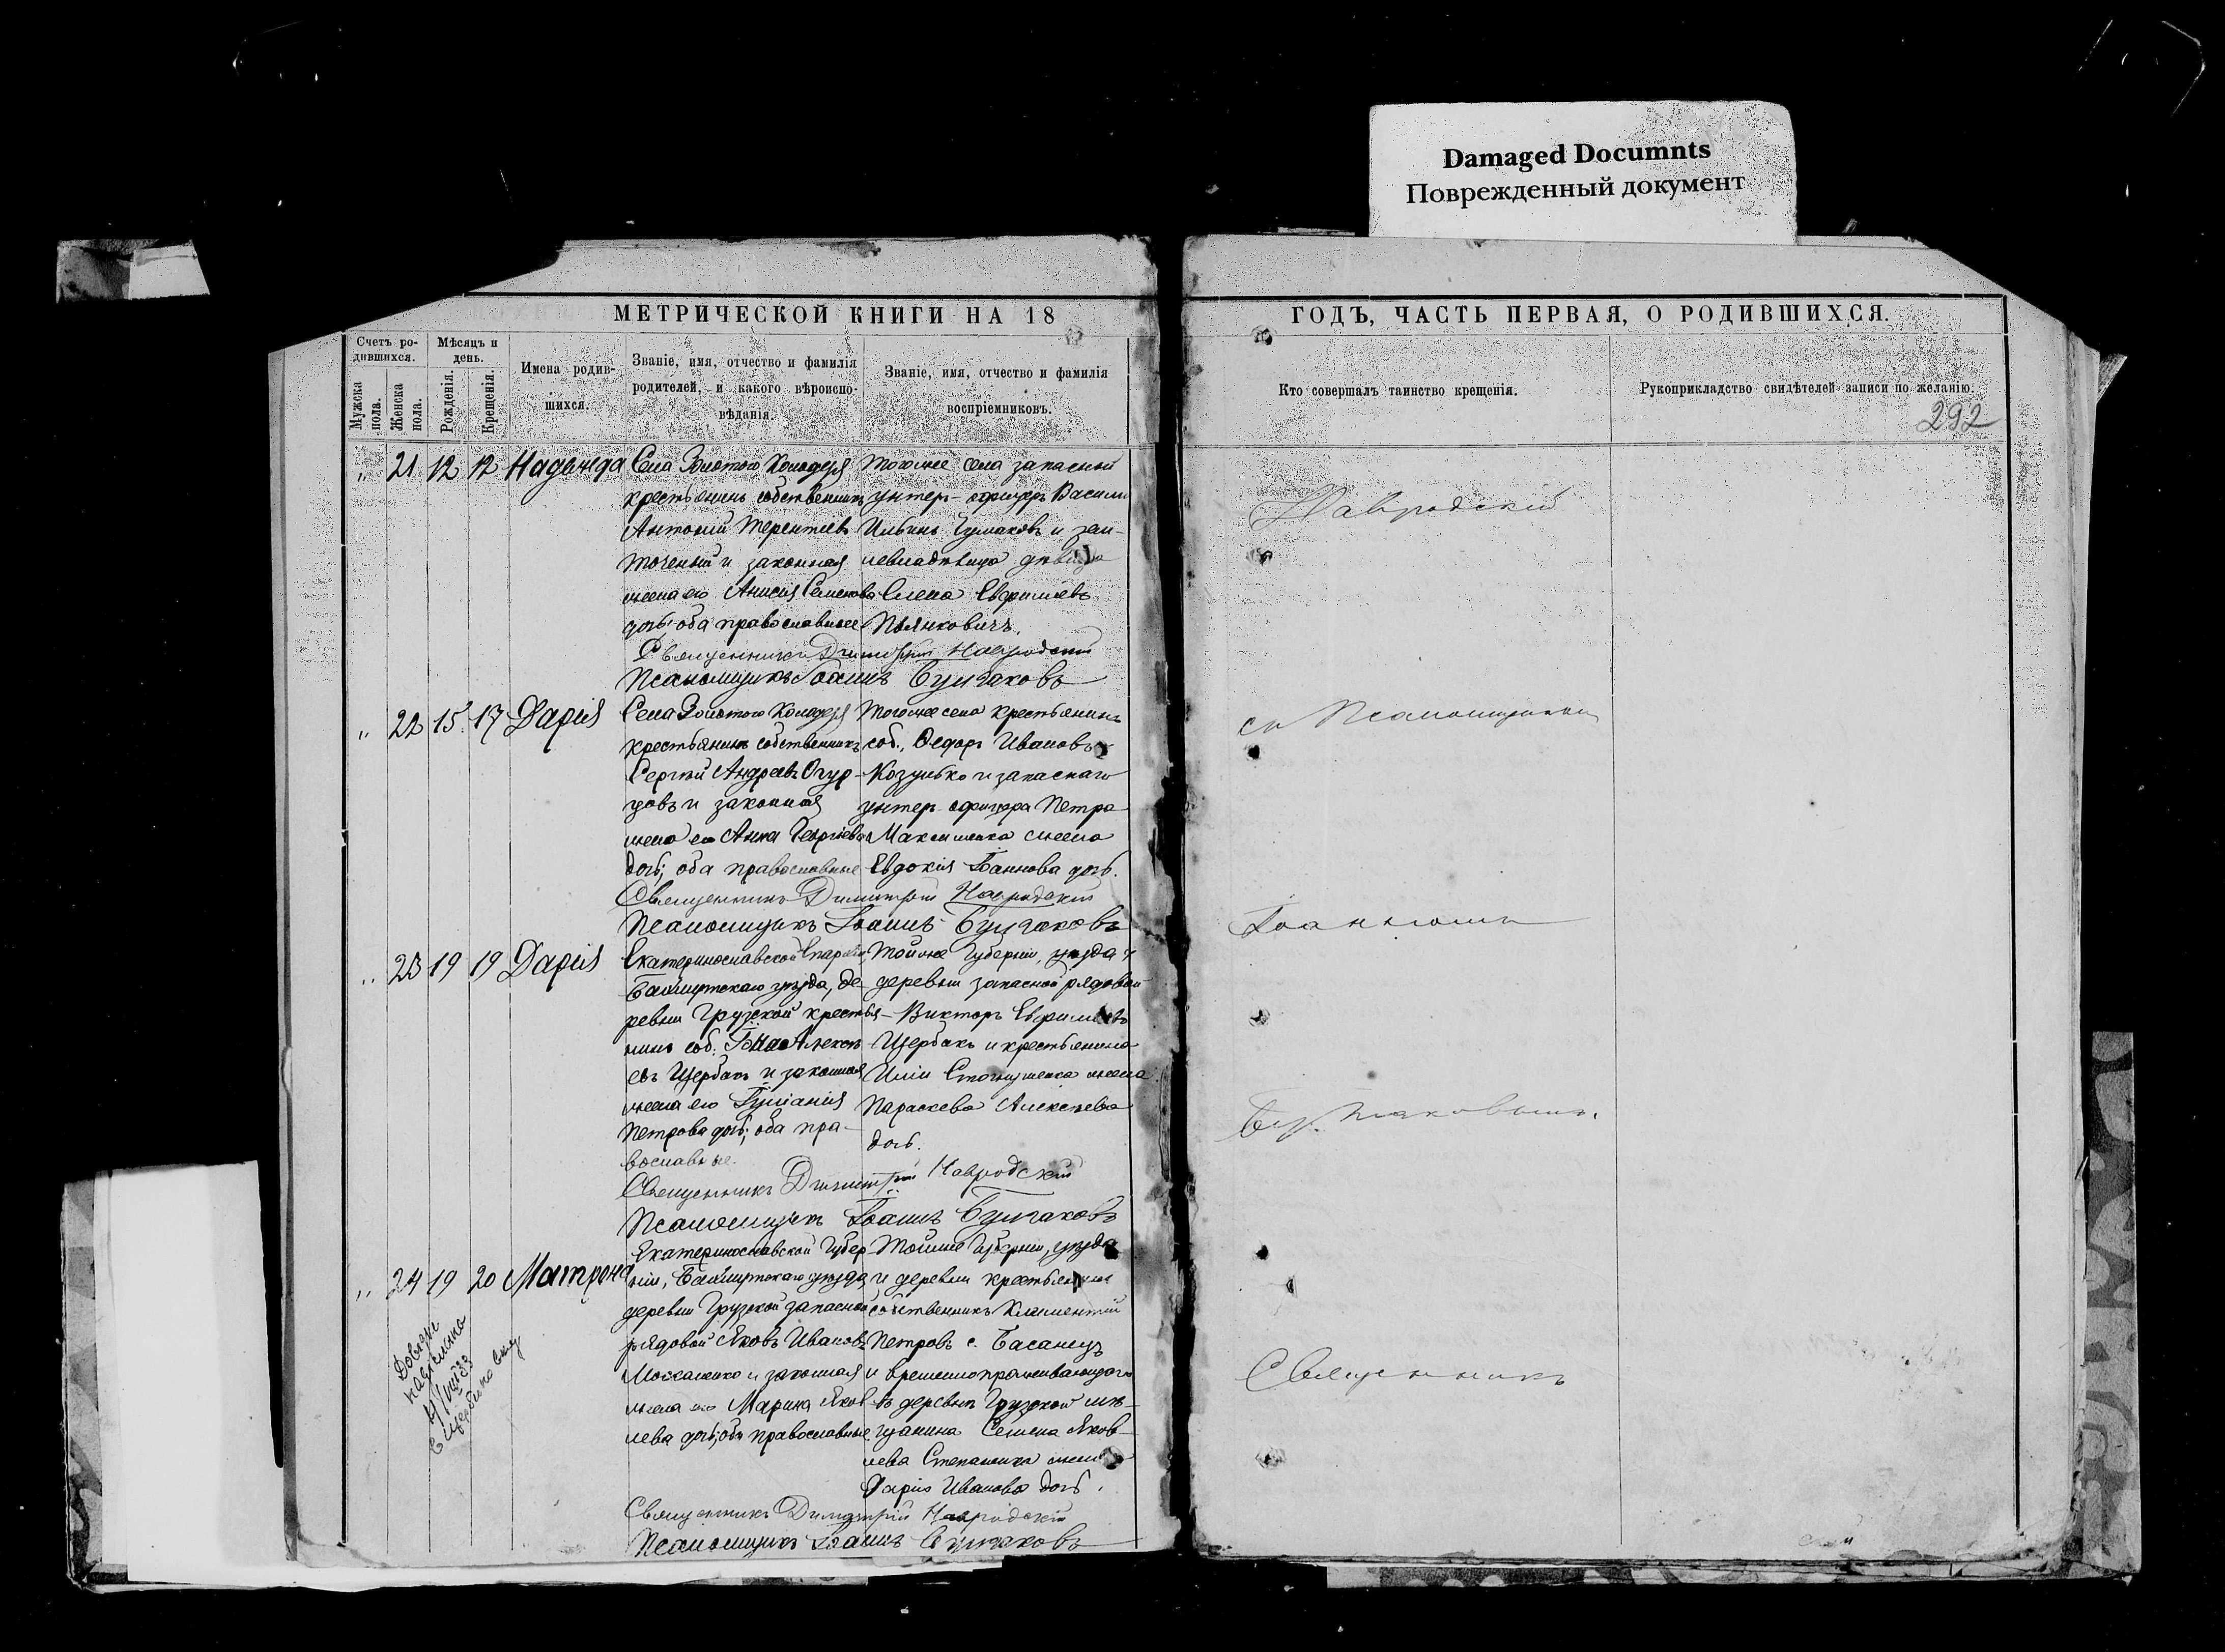 Damaged Documnts
Поврежденный документ
МЕТРИЧЕСКОЙ КНИГИ НА 18
ГОДЪ, ЧАСТЬ ПЕРВАЯ, О РОДИВШИХСЯ.
Счетъ ро-
дившихся.
Мужска
пола.
Женска
пола.
Мѣсяцъ и
день.
Рожденія.
Крещенія.
Имена родив-
шихся.
Званіе, имя, отчество и фамилія
родителей, и какого вѣроиспо-
вѣданія.
Званіе, имя, отчество и фамилія
воспріемниковъ.
Кто совершалъ таинство крещенія.
Рукоприкладство свидѣтелей записи по желанію.
292
„ 21 12 12 Надежда
Села Золотого Колодезя
крестьянинъ собственникъ
Антоній Терентіевъ
и законная
жена его Анисія Семенова
дочь; оба православные
Тогоже села запасный
унтер-офицеръ Василій
Ильинъ Чумаковъ и зем-
левладѣлица дѣвица
Елена Евфиміевъ
Пьянковичъ.
Священникъ Димитрій Навродскій
Псаломщикъ Іоаннъ Булгаковъ
„ 22 15 17 Дарія
Села Золотого Колодезя
крестьянинъ собственникъ
Сергѣй Андреевъ Огур-
цовъ и законная
жена его Анна Георгіева
дочь; оба православные
Тогоже села крестьянинъ
соб., Ѳедоръ Ивановъ
Козубко и запаснаго
унтер-офицера Петра
Максименка жена
Евдокія Іоаннова дочь.
Священникъ Димитрій Навродскій
Псаломщикъ Іоаннъ Булгаковъ
„ 23 19 19 Дарія
Екатеринославской Епархіи,
Бахмутскаго уѣзда, де-
ревни Грузской крестья-
нинъ соб. Алексѣ-
евъ Щербакъ и законная
жена его Іуліанія
Петрова дочь; оба пра-
вославные.
Тойже Губерніи, уѣзда и
деревни запасной рядовой
Викторъ Евфиміевъ
Щербакъ и крестьянина
Иліи жена
Параскева Алексѣева
дочь.
Священникъ Димитрій Навродскій
Псаломщикъ Іоаннъ Булгаковъ
„ 24 19 20 Матрона
Екатеринославской Губер-
ніи, Бахмутскаго уѣзда
деревни Грузской запасной
рядовой Яковъ Ивановъ
Москаленко и законная
жена его Марина Яков-
лева дочь; оба православные
Тойже Губерніи, уѣзда
и деревни крестьянинъ
собственникъ Климентій
Петровъ с. Басанецъ
и временнопроживающаго
въ деревнѣ Грузской мѣ-
щанина Семена Яков-
лева Степаненка жена
Дарія Иванова дочь.
Священникъ Димитрій Навродскій
Псаломщикъ Іоаннъ Булгаковъ
Навродскій
съ Псаломщикомъ
Іоанномъ
Булгаковымъ.
Священникъ